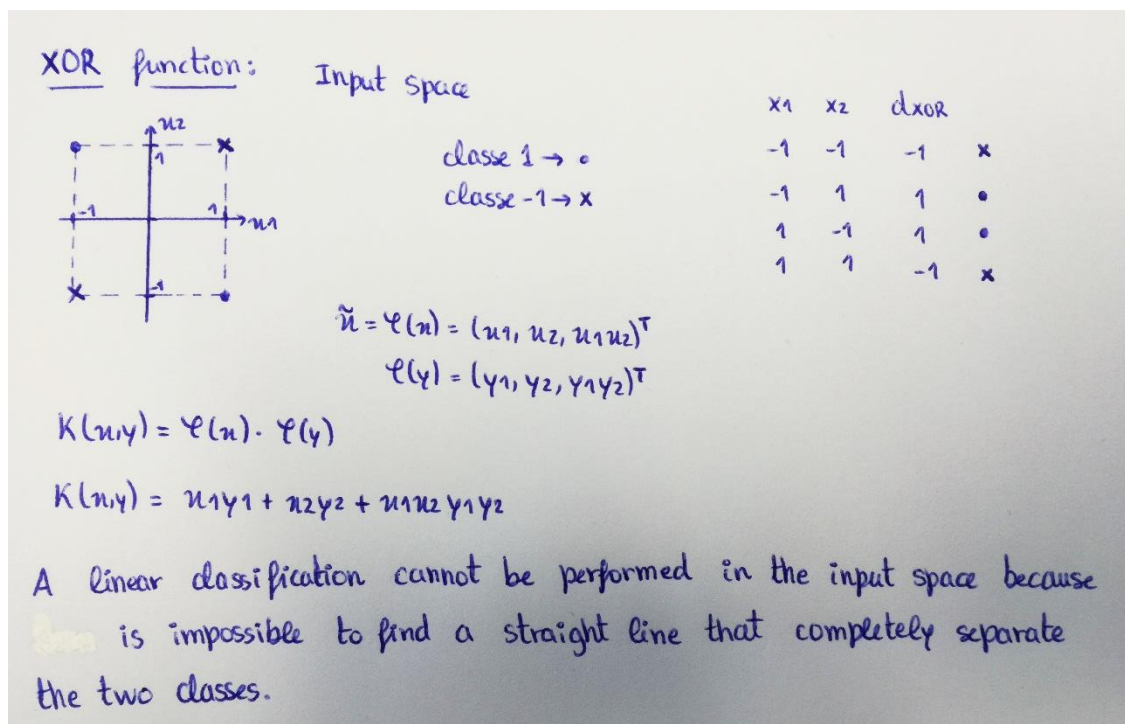 XOR function: Input space
x1 x2 dXOR
x2
1
-1 1 x1
-1
classe 1 → •
classe -1 → x
-1 -1 -1 x
-1 1 1 •
1 -1 1 •
1 1 -1 x
x̃ = φ(x) = (x1, x2, x1x2)ᵀ
φ(y) = (y1, y2, y1y2)ᵀ
K(x,y) = φ(x) · φ(y)
K(x,y) = x1y1 + x2y2 + x1x2 y1y2
A linear classification cannot be performed in the input space because
is impossible to find a straight line that completely separate
the two classes.